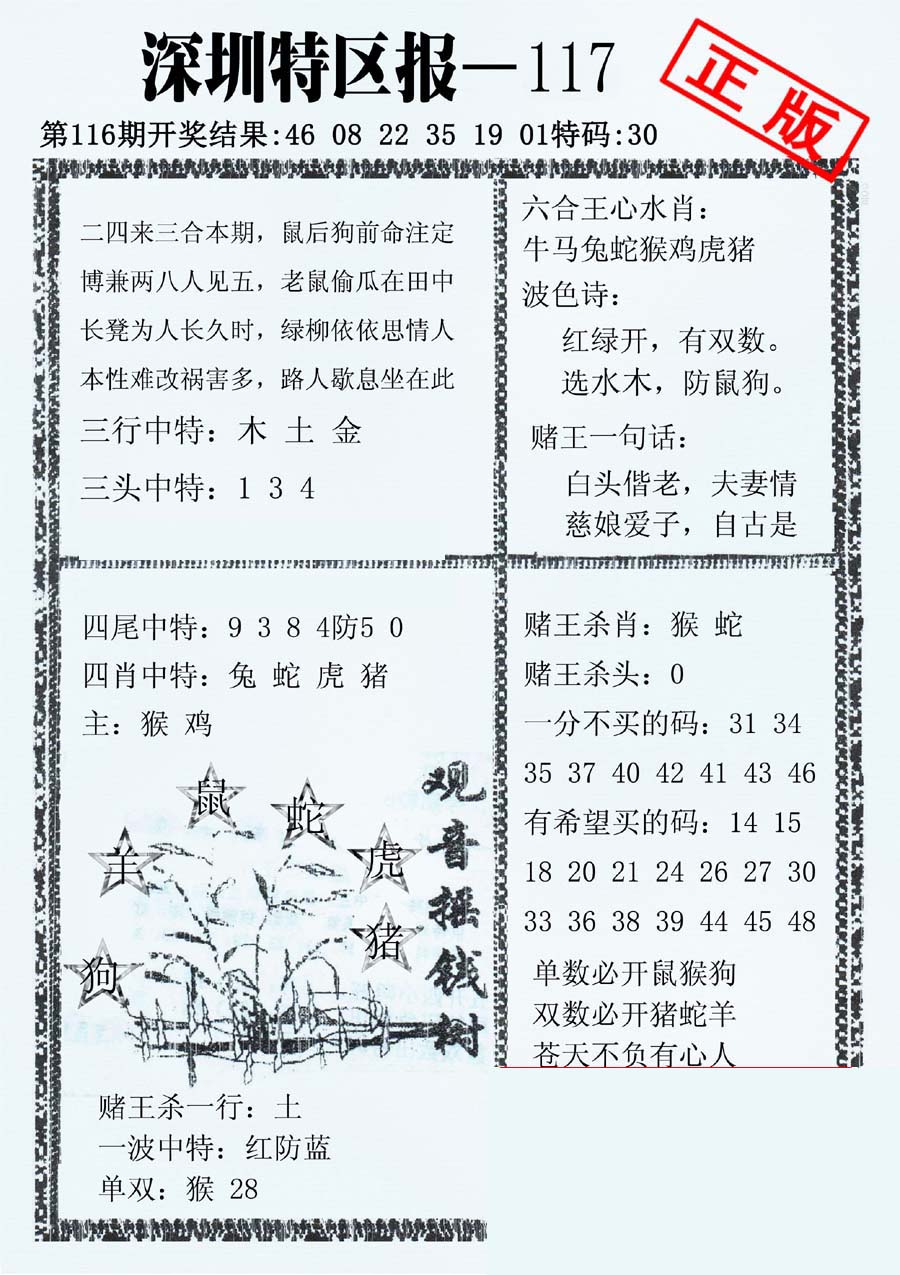 深圳特区报—117
正版
第116期开奖结果:46 08 22 35 19 01特码:30
二四来三合本期，鼠后狗前命注定
博兼两八人见五，老鼠偷瓜在田中
长凳为人长久时，绿柳依依思情人
本性难改祸害多，路人歇息坐在此
三行中特：木 土 金
三头中特：1 3 4
六合王心水肖：
牛马兔蛇猴鸡虎猪
波色诗：
红绿开，有双数。
选水木，防鼠狗。
赌王一句话：
白头偕老，夫妻情
慈娘爱子，自古是
四尾中特：9 3 8 4防5 0
四肖中特：兔 蛇 虎 猪
主：猴 鸡
鼠
蛇
羊
虎
猪
狗
观音摇钱树
赌王杀一行：土
一波中特：红防蓝
单双：猴 28
赌王杀肖：猴 蛇
赌王杀头：0
一分不买的码：31 34
35 37 40 42 41 43 46
有希望买的码：14 15
18 20 21 24 26 27 30
33 36 38 39 44 45 48
单数必开鼠猴狗
双数必开猪蛇羊
苍天不负有心人